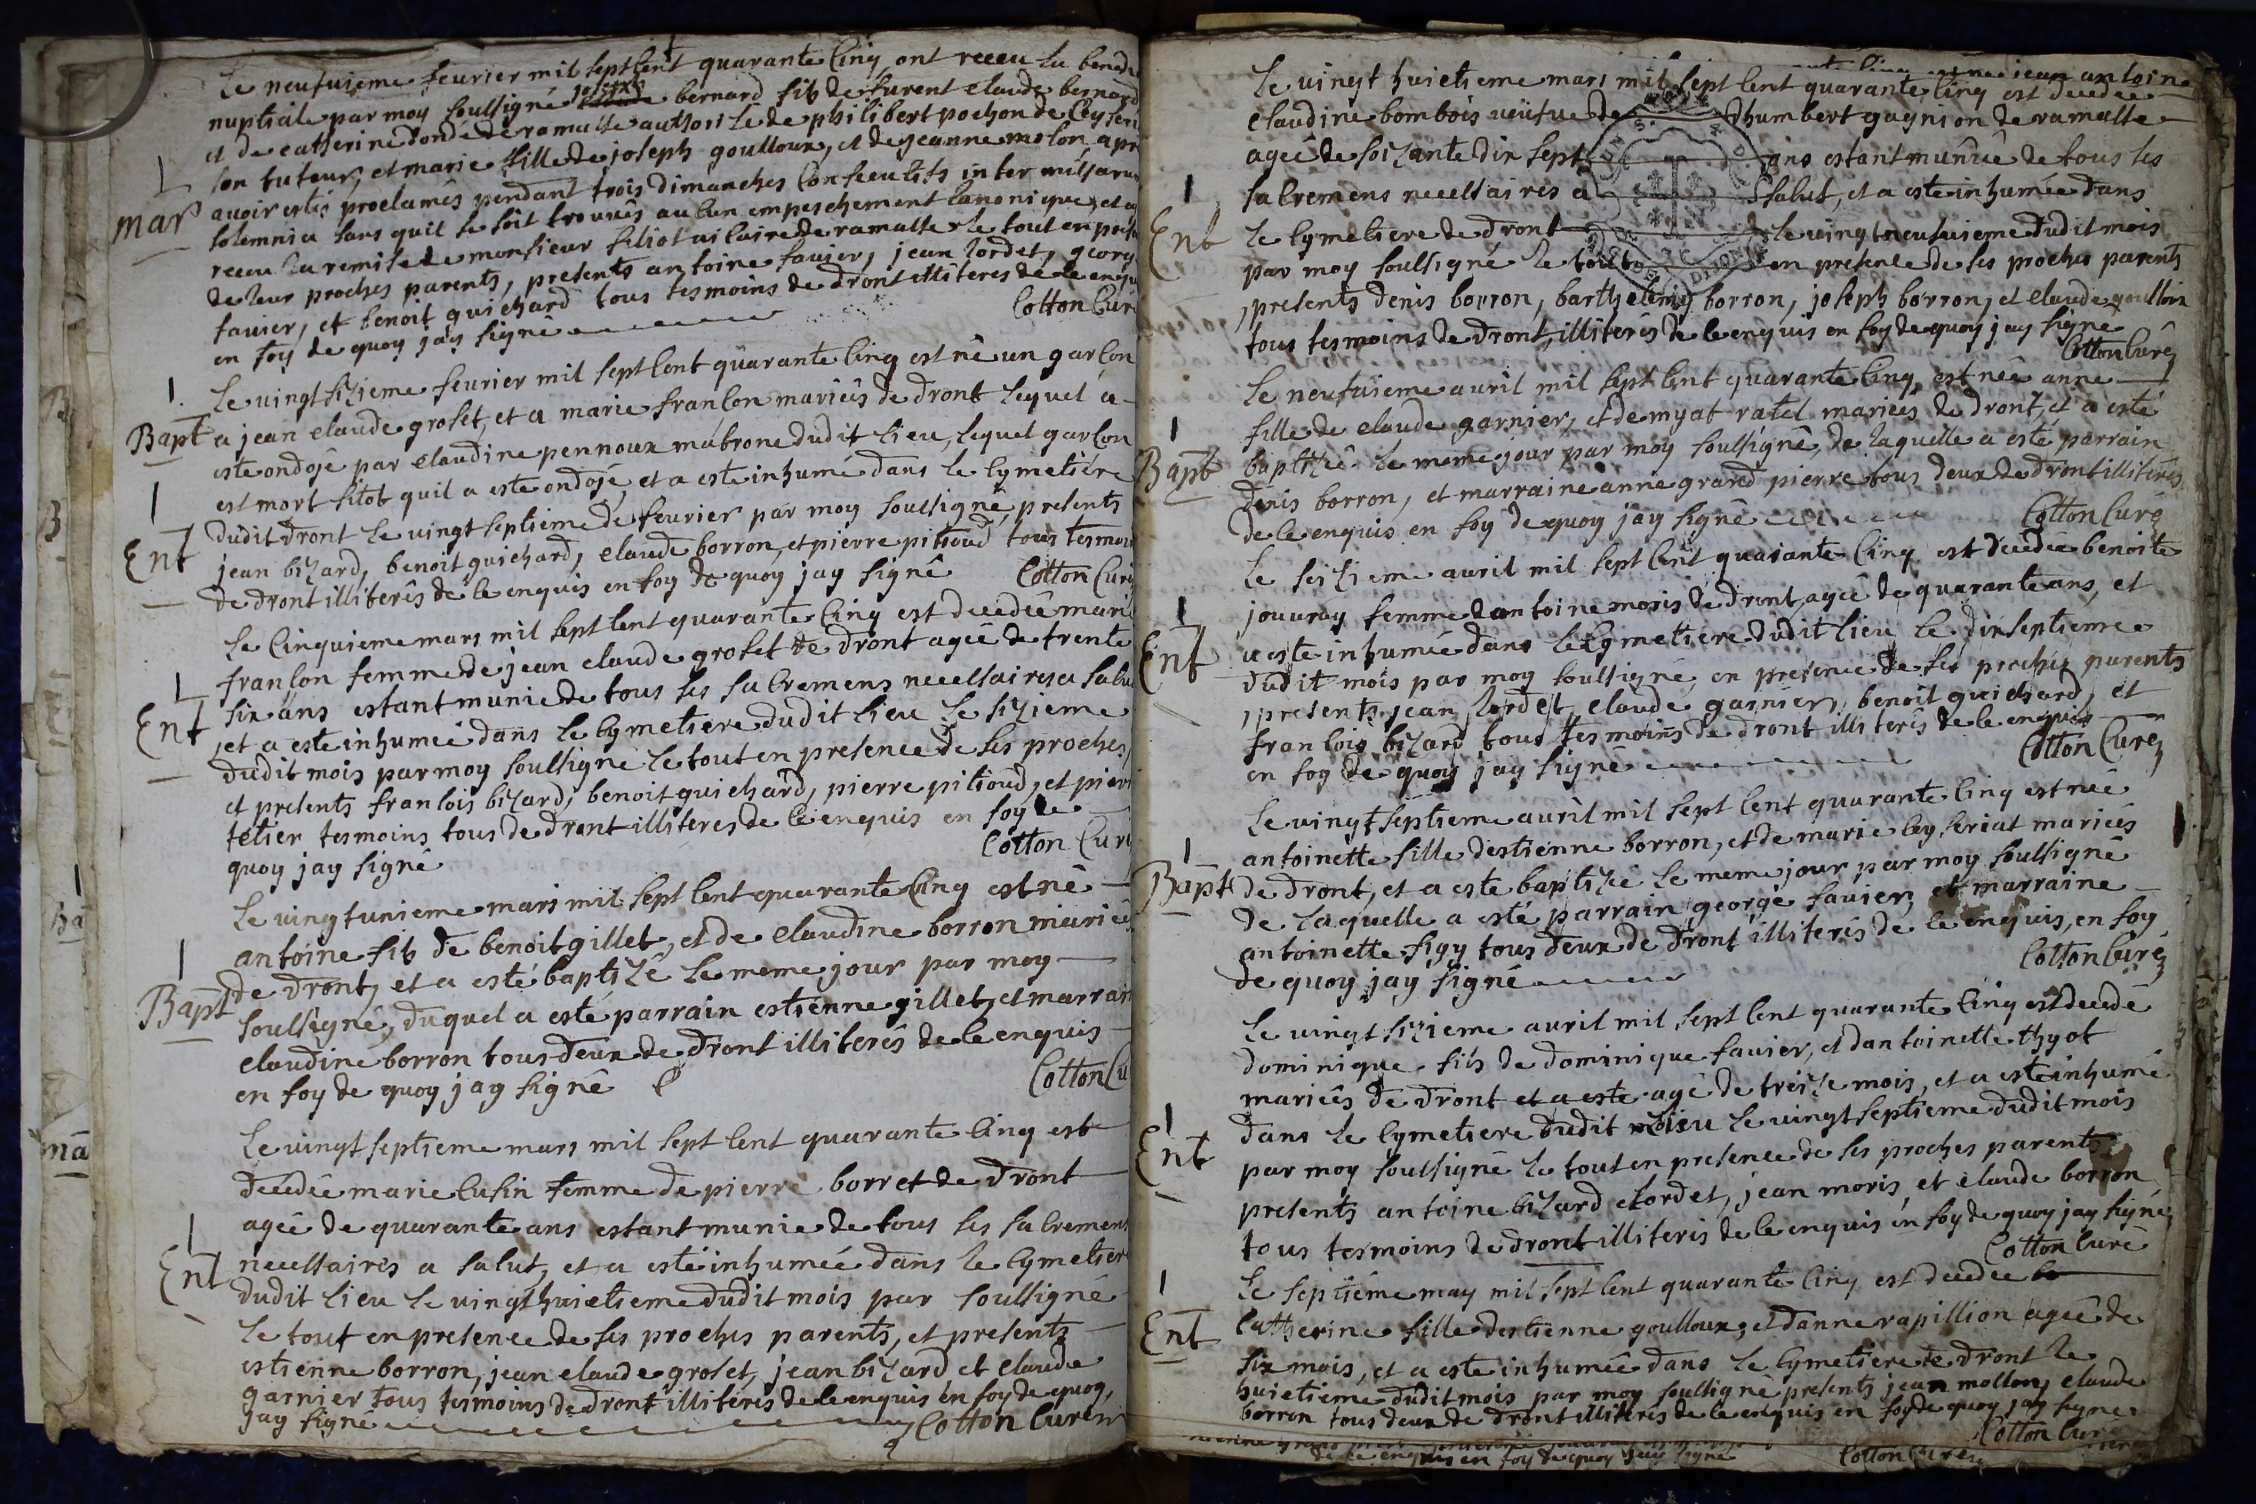 Le neufuieme feurier mil sept cent quarante cinq ont receu la bened
nuptiale par moy soussigné joseph bernard fils de furent claude bernard
et de catherine dondé de ramasse authorisé de philibert pochon de Ceyseri
son tuteur, et marie fille de joseph goulloux, et de jeanne molon, apr
mar
auoir estés proclamés pendant trois dimanches consecutifs inter missarum
solemnia sans quil se soit trouués aucun empeschement canonique, et a
receu la remise de monsieur filiol uicaire de ramasse le tout en prese
de leur proches parents, presents antoine fauier, jean lordet, georg
fauier, et benoit guichard tous tesmoins de dront illiteres de ce enqu
en foy de quoy jay signé
Cotton Curé
Le vingt sizieme feurier mil sept cent quarante cinq est né un garcon
Bapt
a jean claude groset, et a marie francon mariés de dront lequel a
este ondojé par claudine pennoux mabrone dudit lieu, lequel garcon
est mort sitot quil a este ondojé, et a este inhumé dans le cymetiére
dudit dront le vingt septieme de feurier par moy soussigné, presents
Ent
jean bizard, benoit guichard, claude borron, et pierre pitioud tous tesmoi
de dront illiterés de ce enquis en foy de quoy jay signé
Cotton Curé
Le Cinquieme mars mil sept cent quarante cinq est decedée marie
francon femme de jean claude groset de dront agée de trente
six ans estant munie de tous les sacremens necessaires a salu
Ent
et a este inhumée dans le cymetiere dudit lieu le sizieme
dudit mois par moy soussigné le tout en presence de ses proches,
et presents francois bizard, benoit guichard, pierre pitioud, et pierr
tetier tesmoins tous de dront illiteres de ce enquis en foy de
quoy jay signé
Cotton Curé
Le vingt unieme mars mil sept cent quarante cinq est né
antoine fils de benoit gillet, et de claudine borron mariés
de dront, et a esté baptizé le meme jour par moy
Bapt
soussigné, duquel a esté parrain estienne gillet, et marrain
claudine borron tous deux de dront illiterés de ce enquis
en foy de quoy jay signé
Cotton Cu
Le vingt septieme mars mil sept cent quarante cinq est
decedée marie cusin femme de pierre borret de dront
agée de quarante ans estant munie de tous les sacremens
Ent
necessaires a salut, et a esté inhumée dans le cymetier
dudit lieu le vingt huictieme dudit mois par soussigné
le tout en presence de ses proches parents, et presents
estienne borron, jean claude groset, jean bizard et claude
garnier tous tesmoins de dront illiterés de ce enquis en foy de quoy
jay signé
Cotton Curé
jean antoine
Le vingt huictieme mars mil sept cent quarante cinq est decedée
claudine bombois veufue de dhumbert gagnion de ramasse
agée de soizante dix sept ans estant munie de tous les
sacremens necessaires a salut, et a este inhumée dans
Ent
le cymetiere de dront le vingt neufuieme dudit mois
par moy soussigné le tout en presence de ses proches parents
presents denis borron, barthelemy borron, joseph borron, et claude goulloux
tous tesmoins de dront, illiterés de ce enquis en foy de quoy jay signé
Cotton Curé
Le neufuieme auril mil sept cent quarante cinq est née anne
fille de claude garnier, et de myat ratel mariées de dront, et a esté
Bapt
baptizée le meme jour par moy soussigné, de laquelle a esté parrain
denis borron, et marraine anne grand pierre tous deux de dront illiterés
de ce enquis en foy de quoy jay signé
Cotton Curé
Le seizieme auril mil sept cent quarante cinq est decedée benoite
jouuray femme dantoine moris de dront, agée de quarante ans, et
Ent
a este inhumée dans le cymetiere dudit lieu le dix septieme
dudit mois par moy soussigné, en presence de ses proches parents
presents jean lordet, claude garnier, benoit guichard, et
francois bizard tous tesmoins de dront illiterés de ce enquis
en foy de quoy jay signé
Cotton Curé
Le vingt septieme auril mil sept cent quarante cinq est née
antoinette fille destienne borron, et de marie ceyseriat mariés
Bapt
de dront, et a este baptizée le meme jour par moy soussigné
de laquelle a esté parrain george fauier, et marraine
antoinette figy tous deux de dront illiterés de ce enquis, en foy
de quoy jay signé
Cotton Curé
Le vingt sizieme auril mil sept cent quarante cinq est decedé
dominique fils de dominique fauier, et dantoinette thyot
mariés de dront et a este agé de treize mois, et a este inhumé
Ent
dans le cymetiere dudit lieu le vingt septieme dudit mois
par moy soussigné le tout en presence de ses proches parents
presents antoine bizard lordet, jean moris, et claude borron
tous tesmoins de dront illiteris de ce enquis en foy de quoy jay signé
Cotton Curé
Le septiéme may mil sept cent quarante cinq est decedée
Ent
catherine fille destienne goulloux, et danne rapillion agée de
six mois, et a este inhumée dans le cymetiere de dront le
huictieme dudit mois par moy soussigné presents jean mollon, claude
borron tous deux de dront illiterés de ce enquis en foy de quoy jay signé
Cotton Curé
de ce enquis en foy de quoy jay signé
Cotton Curé